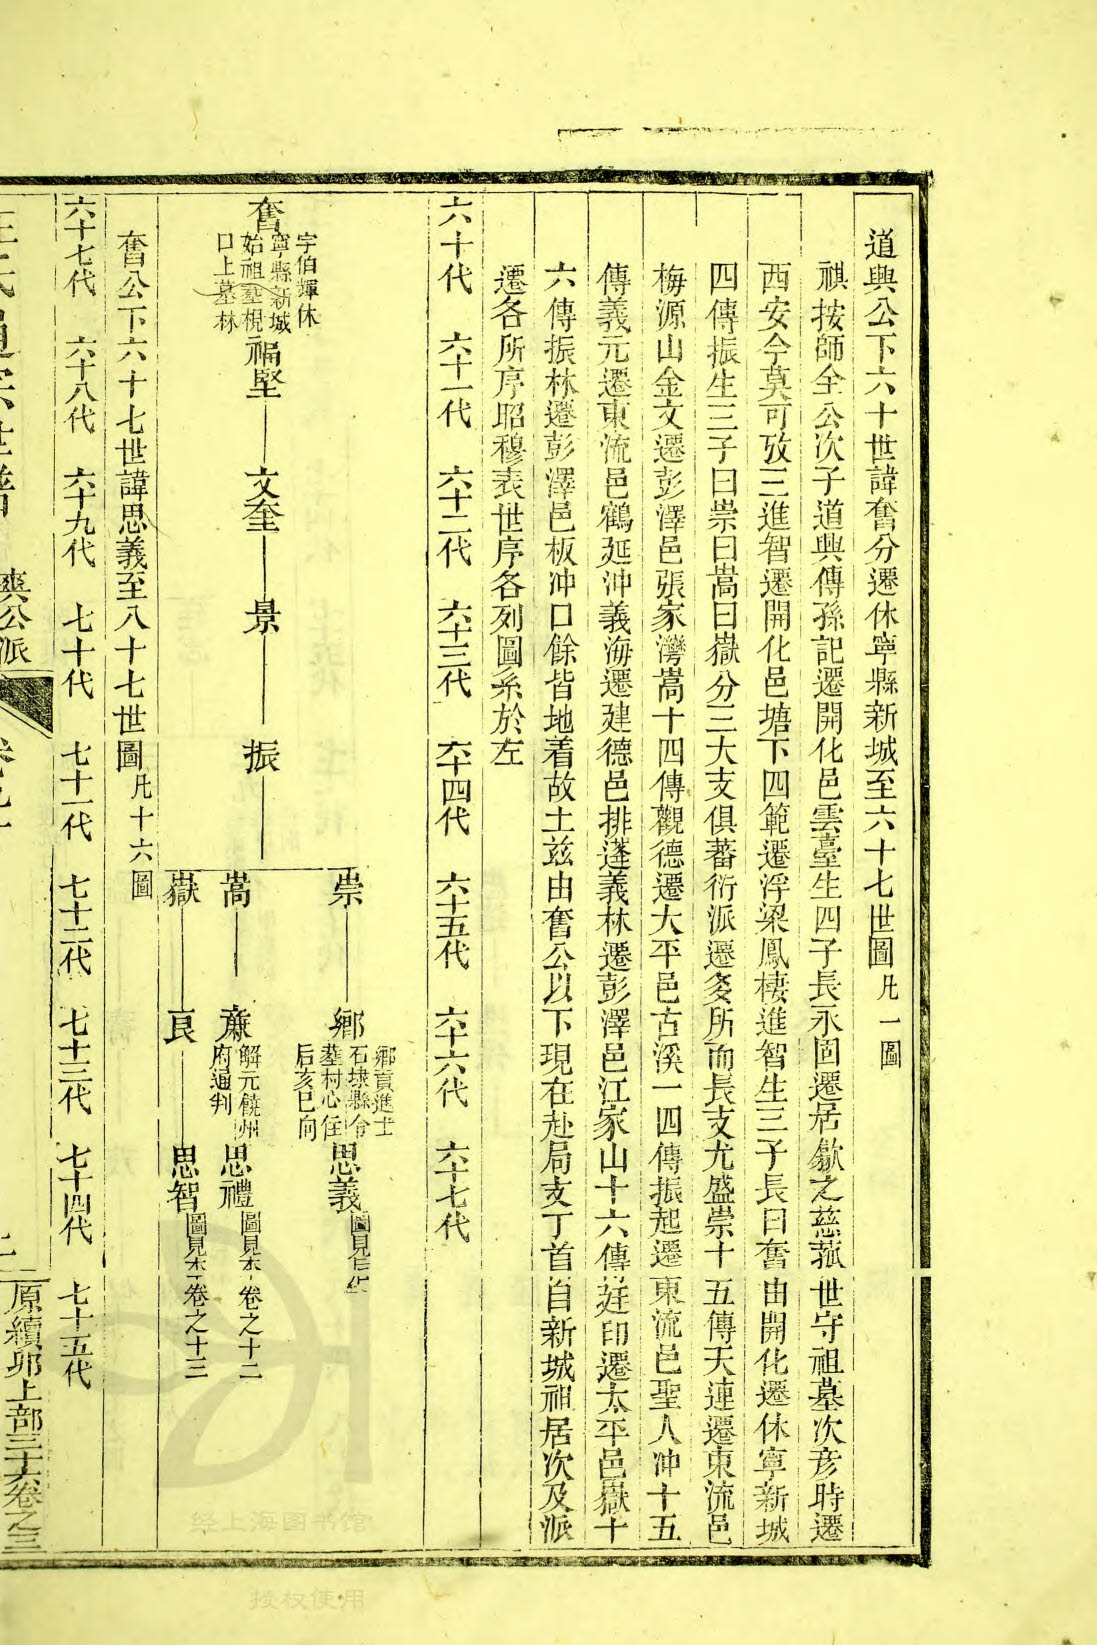 道興公下六十世諱奮分遷休寧縣新城至六十七世圖凡一圖
祺按師全公次子道興傳孫記遷開化邑雲臺生四子長永固遷居歙之慈菰世守祖墓次彦時遷
西安今莫可攷三進智遷開化邑塘下四範遷浮梁鳳棲進智生三子長曰奮由開化遷休寧新城
四傳振生三子曰崇曰嵩曰嶽分三大支俱蕃衍派遷多所而長支尤盛崇十五傳天連遷東流邑
梅源山金文遷彭澤邑張家灣嵩十四傳觀德遷大平邑古溪一四傳振起遷東流邑聖人冲十五
傳義元遷東流邑鶴延冲義海遷建德邑排蓬義林遷彭澤邑江家山十六傳廷印遷太平邑嶽十
六傳振林遷彭澤邑板冲口餘皆地着故土茲由奮公以下現在赴局支丁首自新城祖居次及派
遷各所序昭穆表世序各列圖系於左
六十代 六十一代 六十二代 六十三代 六十四代 六十五代 六十六代 六十七代
奮 字伯輝休寧縣新城始祖塟梘口上墓林
福堅
文奎
景
振
崇 鄉 鄉貢進士石埭縣令塟村心住后亥巳向 思義
嵩 亷 解元饒州府通判 思禮 圖見本卷之十二
嶽 良 思智 圖見本卷之十三
奮公下六十七世諱思義至八十七世圖凡十六圖
六十七代 六十八代 六十九代 七十代 七十一代 七十二代 七十三代 七十四代 七十五代
爽公派
原續卯上部三十六卷之三
经上海图书馆
授权使用